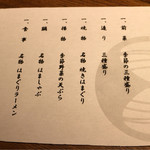 一、前菜 季節の三種盛り
一、造り 三種盛り
一、焼物 名物 焼きはまぐり
一、揚物 季節野菜の天ぷら
一、鍋 名物 はましゃぶ
一、食事 名物 はまぐりラーメン